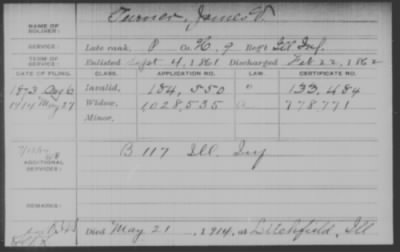 Turner, James V.
NAME OF SOLDIER:
SERVICE: Late rank, P Co. H, 9 Reg't Ill Inf.
TERM OF SERVICE: Enlisted Sept 4, 1861 Discharged Feb 22, 1862
DATE OF FILING. CLASS. APPLICATION NO. LAW. CERTIFICATE NO.
1873 Aug 6 Invalid, 184,550 " 133,484
1914 May 27 Widow, 1,028,535 a 778,771
Minor,
ADDITIONAL SERVICES: B 117 Ill. Inf
REMARKS:
Died May 21, 1914, at Litchfield, Ill